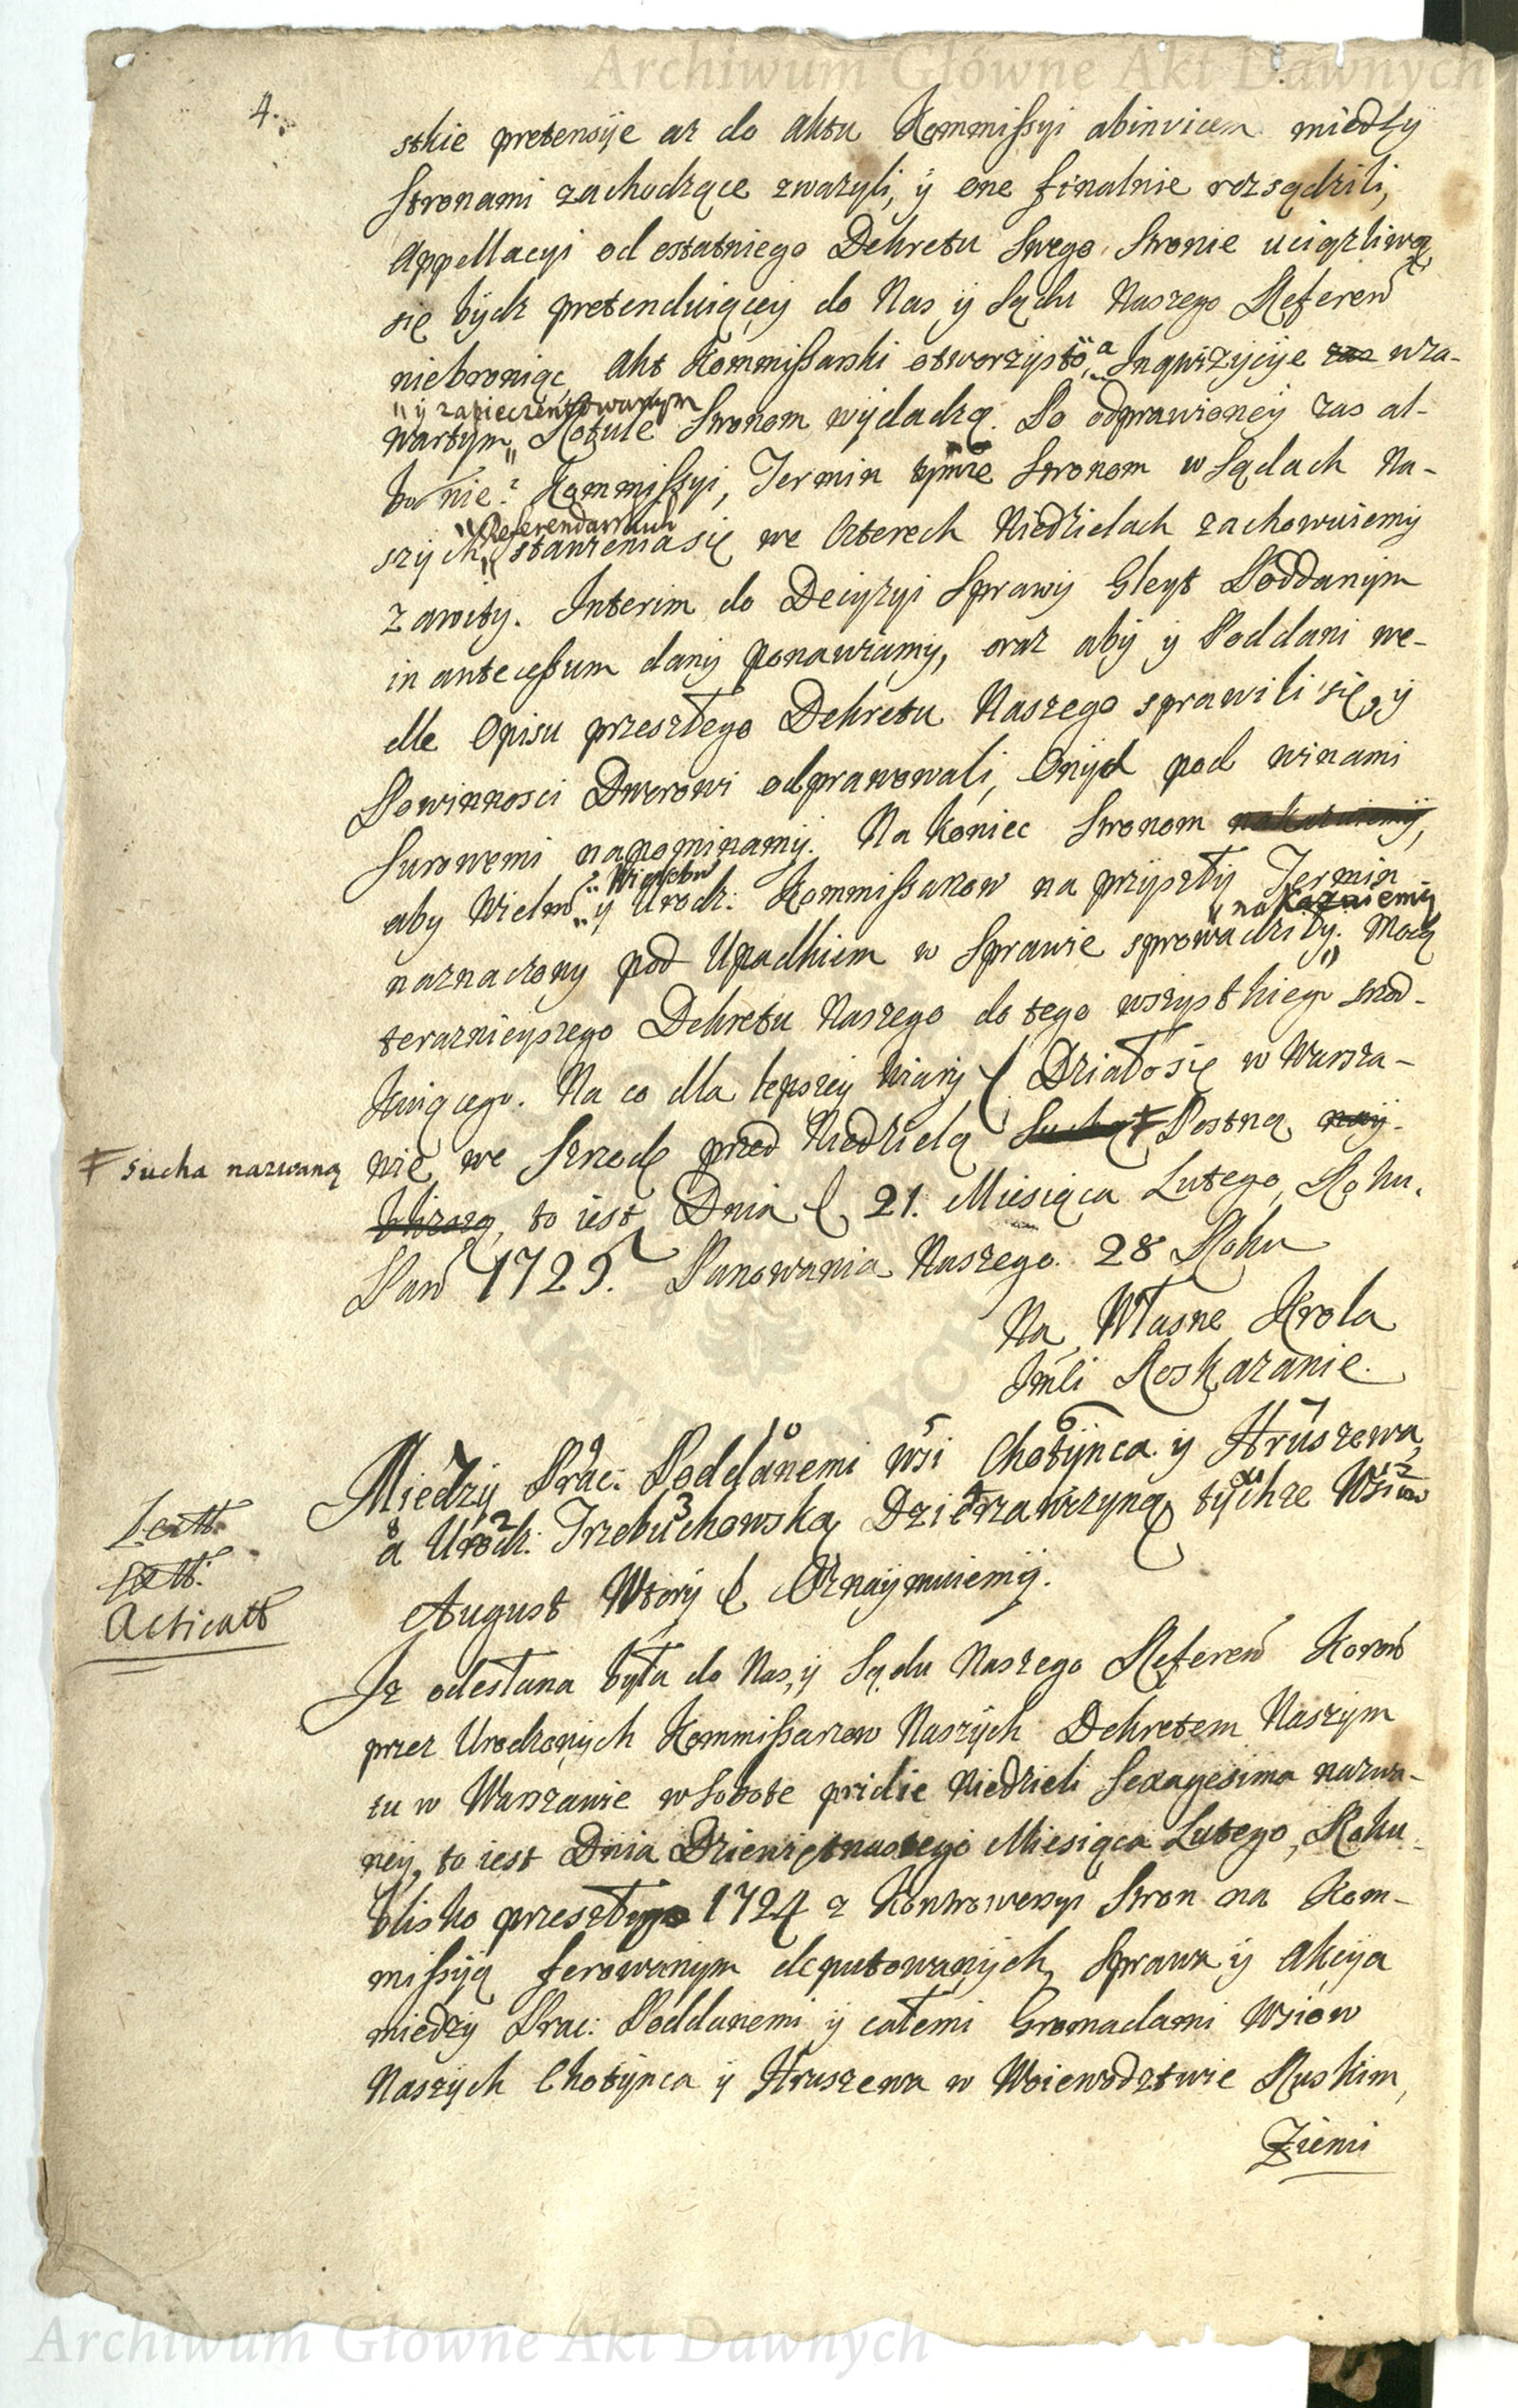 Archiwum Główne Akt Dawnych
4.
stkie pretensÿe az do aktu Kommissyi abinvicem miedzÿ
Stronami zachodzące zwazyli, ÿ one finalnie rozsądzili,
Appellacyi od ostatniego Dekretu Swego Stronie uciązliwą
się bÿdz pretenduiącey do Nas ÿ Sądu Naszego Referen
niebroniąc, Akt Kommissarski otworzysto, a Inqwizycÿe zas wza-
" ÿ zapieczentowanym
wartym " Rotule Stronom wÿdadzą. Po odprawioney zas al-
bo nie? Kommissyi, Termin tÿmze Stronom w Sądach Na-
" Referendarskich
szÿch " stawienia się we Czterech Niedzielach zachowuiemÿ
zawitÿ. Interim do Decyzyi Sprawÿ Gleyt Poddanÿm
in antecessum danÿ ponawiamÿ, oraz abÿ ÿ Poddani we-
dle Opisu przeszłego Dekretu Naszego sprawili się, ÿ
Powinnosci Dworowi odprawowali, Onÿch pod winami
Surowemi napominamÿ. Na koniec Stronom nakazuiemÿ,
" Wielebn
aby Wielm " ÿ Urodz: Kommissarzow na przyszłÿ Termin
" nakazuiemÿ
naznaczonÿ pod Upadkiem w Sprawie sprowadziłÿ. " Mocą
teraznieyszego Dekretu Naszego do tego wszÿstkiego srod-
kuiącego. Na co dla lepszeÿ wiarÿ Działo się w Warsza-
wie we Srzodę przed Niedzielą Suchą ǂ Postną naÿ-
ǂ sucha nazwaną
blizszą, to iest Dnia 21. Miesiąca Lutego, Roku
Pań 1725. Panowania Naszego 28 Roku
Na Własne Krola
Jmći Roskazanie.
Miedzÿ Prac: Poddanemi wsi Chotÿnca ÿ Hruszewa
7 9 10 5 6
a Urodz: Trzebuchowską Dzierzawczÿną tÿchze Wsiow
8 2 3 4 12
Lectt.
Acticatt
August Wtorÿ Oznaÿmuiemÿ.
Iz odesłana była do Nas, ÿ Sądu Naszego Referen Koron
przez Urodzonÿch Kommissarzow Naszÿch Dekretem Naszÿm
tu w Warszawie w Sobote pridie Niedzieli Sexagesima nazwa-
neÿ, to iest Dnia Dziewiętnastego Miesiąca Lutego, Roku
blisko przeszłego 1724 z Kontrowersyi Stron na Kom-
missÿą ferowanÿm deputowanÿch, Sprawa ÿ Akcÿa
miedzÿ Prac: Poddanemi ÿ całemi Gromadami Wsiow
Naszÿch Chotÿnca ÿ Hruszewa w Woiewodztwie Ruskim,
Ziemi
Archiwum Główne Akt Dawnych